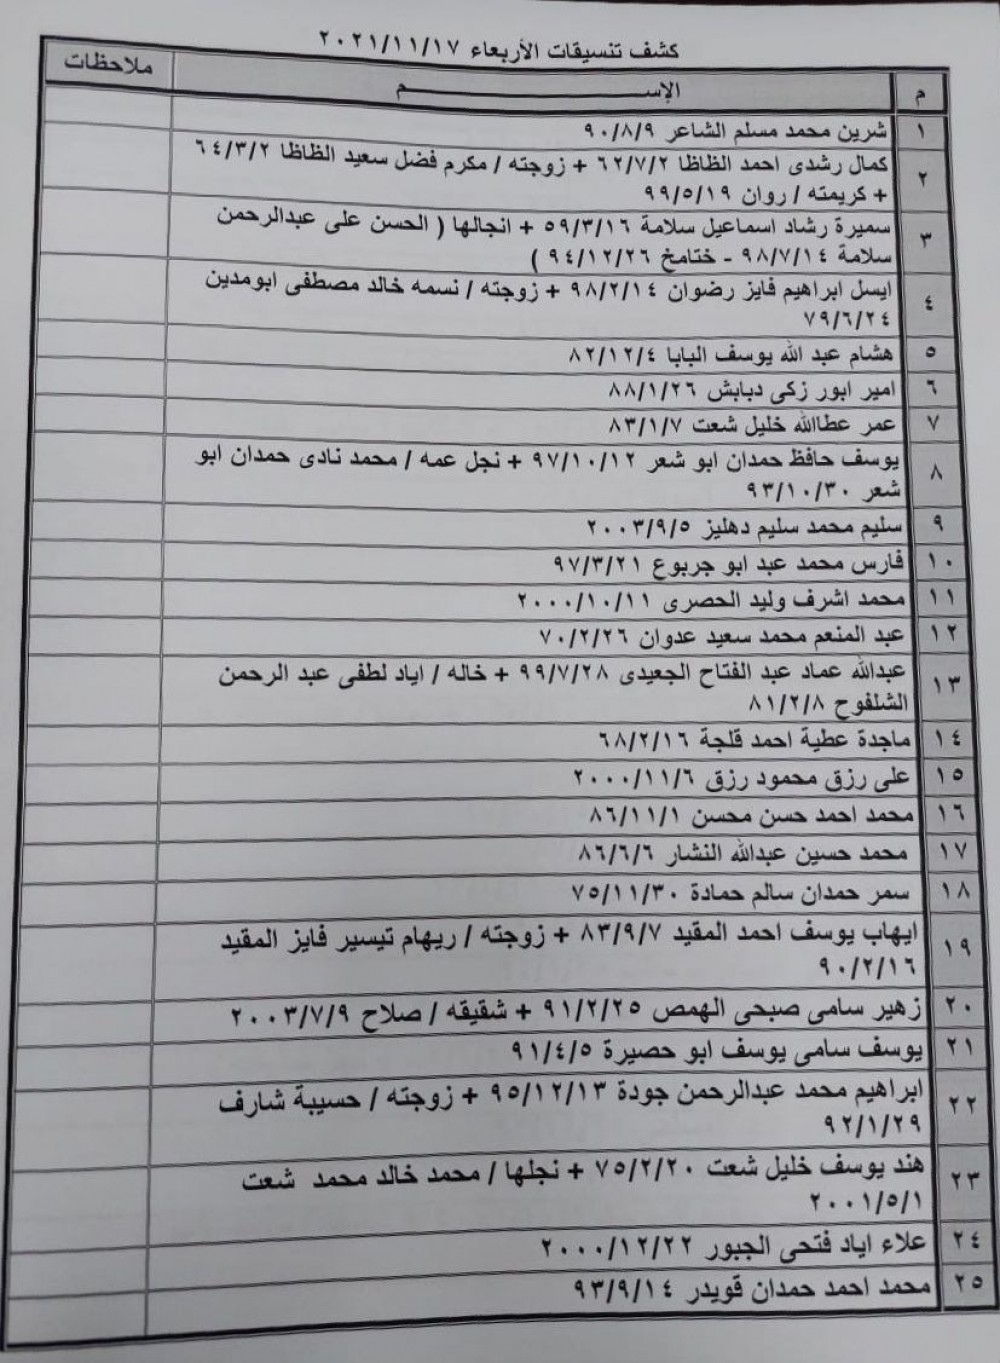 كشف تنسيقات الأربعاء ٢٠٢١/١١/١٧
م الإســـــــــــــــــــــم ملاحظات
١ شرين محمد مسلم الشاعر ٩٠/٨/٩
٢ كمال رشدى احمد الظاظا ٦٢/٧/٢ + زوجته / مكرم فضل سعيد الظاظا ٦٤/٣/٢
+ كريمته / روان ٩٩/٥/١٩
٣ سميرة رشاد اسماعيل سلامة ٥٩/٣/١٦ + انجالها ( الحسن على عبدالرحمن
سلامة ٩٨/٧/١٤ - ختامخ ٩٤/١٢/٢٦ )
٤ ايسل ابراهيم فايز رضوان ٩٨/٢/١٤ + زوجته / نسمه خالد مصطفى ابومدين
٧٩/٦/٢٤
٥ هشام عبد الله يوسف البابا ٨٢/١٢/٤
٦ امير ابور زكى دبابش ٨٨/١/٢٦
٧ عمر عطاالله خليل شعت ٨٣/١/٧
٨ يوسف حافظ حمدان ابو شعر ٩٧/١٠/١٢ + نجل عمه / محمد نادى حمدان ابو
شعر ٩٣/١٠/٣٠
٩ سليم محمد سليم دهليز ٢٠٠٣/٩/٥
١٠ فارس محمد عبد ابو جربوع ٩٧/٣/٢١
١١ محمد اشرف وليد الحصرى ٢٠٠٠/١٠/١١
١٢ عبد المنعم محمد سعيد عدوان ٧٠/٢/٢٦
١٣ عبدالله عماد عبد الفتاح الجعيدى ٩٩/٧/٢٨ + خاله / اياد لطفى عبد الرحمن
الشلفوح ٨١/٢/٨
١٤ ماجدة عطية احمد قلجة ٦٨/٢/١٦
١٥ على رزق محمود رزق ٢٠٠٠/١١/٦
١٦ محمد احمد حسن محسن ٨٦/١١/١
١٧ محمد حسين عبدالله النشار ٨٦/٦/٦
١٨ سمر حمدان سالم حمادة ٧٥/١١/٣٠
١٩ ايهاب يوسف احمد المقيد ٨٣/٩/٧ + زوجته / ريهام تيسير فايز المقيد
٩٠/٢/١٦
٢٠ زهير سامى صبحى الهمص ٩١/٢/٢٥ + شقيقه / صلاح ٢٠٠٣/٧/٩
٢١ يوسف سامى يوسف ابو حصيرة ٩١/٤/٥
٢٢ ابراهيم محمد عبدالرحمن جودة ٩٥/١٢/١٣ + زوجته / حسيبة شارف
٩٢/١/٢٩
٢٣ هند يوسف خليل شعت ٧٥/٢/٢٠ + نجلها / محمد خالد محمد شعت
٢٠٠١/٥/١
٢٤ علاء اياد فتحى الجبور ٢٠٠٠/١٢/٢٢
٢٥ محمد احمد حمدان قويدر ٩٣/٩/١٤